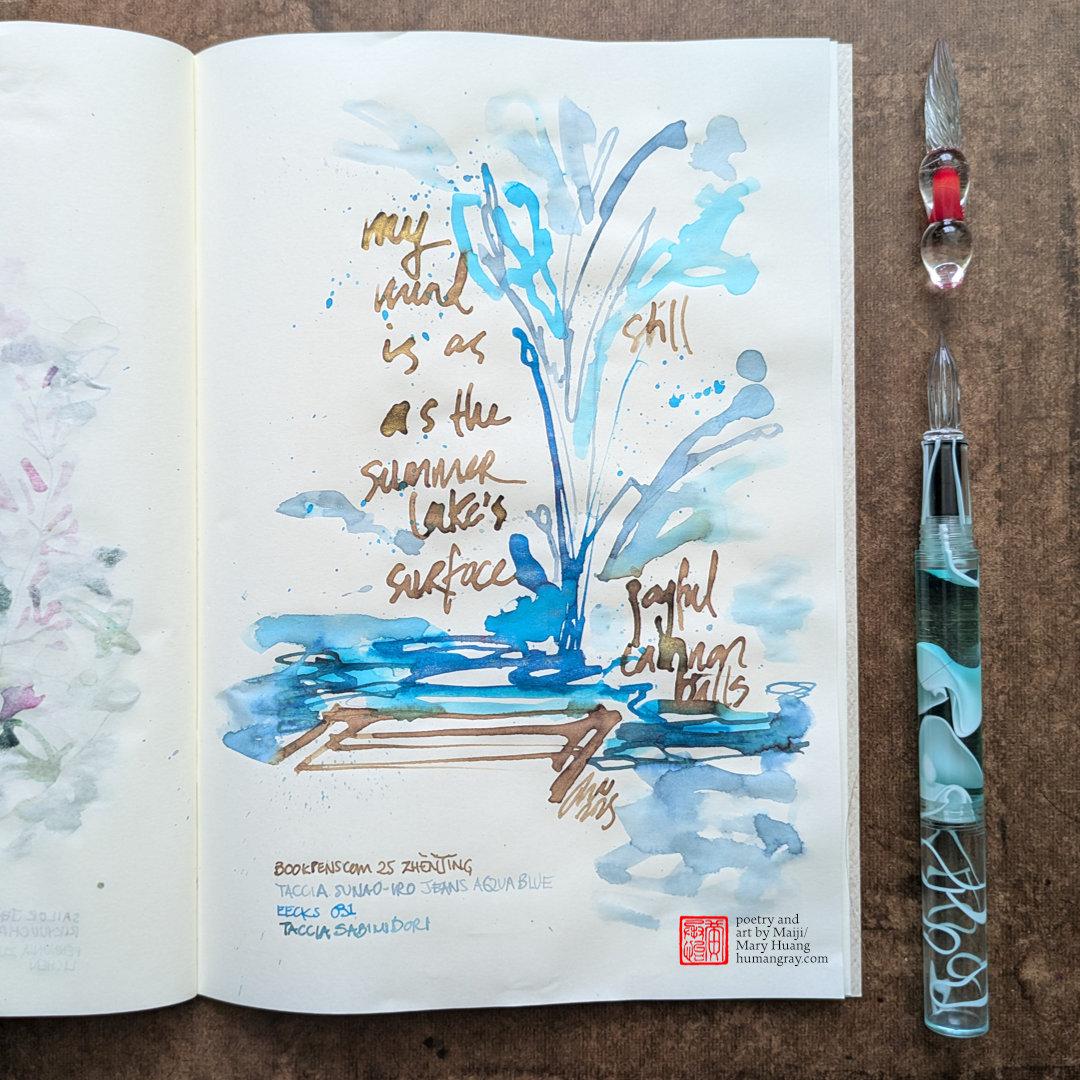 my
mind
is as
still
as the
summer
lake's
surface
joyful
cannon
balls
2025
BOOKPENSCOM 25 ZHĒNTĪNG
TACCIA SUNAO-IRO JEANS AQUA BLUE
EECKS 031
TACCIA SABIMIDORI
poetry and
art by Maiji/
Mary Huang
humangray.com